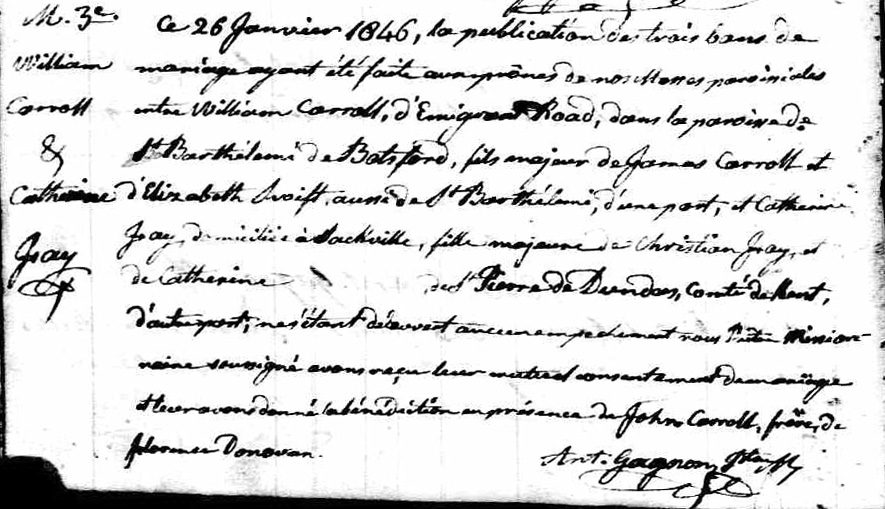 M. 3e.
William
Carroll
&
Catherine
Ce 26 Janvier 1846, la publication des trois bans de
mariage ayant été faite aux prônes de nos Messes paroissiales
entre William Carroll, d'Emigrant Road, dans la paroisse de
St Barthélemi de Botsford, fils majeur de James Carroll et
d'Elizabeth Swift, aussi de St Barthélemi, d'une part, et Catherine
domiciliée à Sackville, fille majeure de Christian et
de Catherine de St Pierre de Dundas, Comté de Kent,
d'autre part; ne s'étant découvert aucun empêchement nous Prêtre Mission-
naire soussigné avons reçu leur mutuel consentement de mariage
et leur avons donné la bénédiction en présence de John Carroll, frère, de
Florence Donovan.
Ant. Gagnon, Ptre